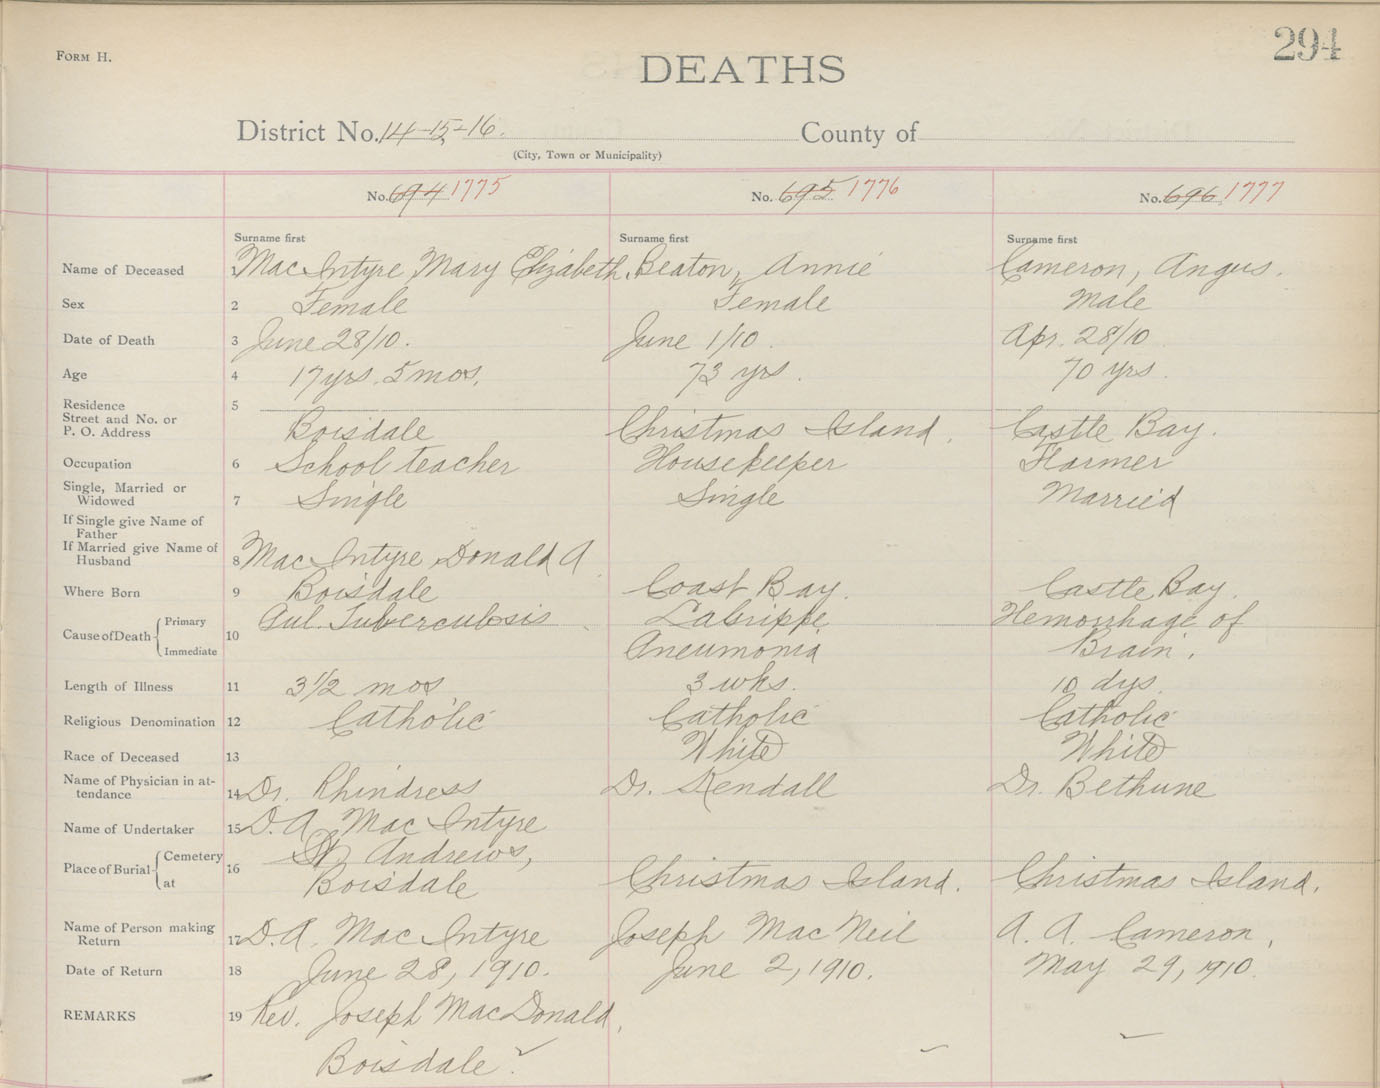 294
FORM H.
DEATHS
District No. 14-15-16. County of
(City, Town or Municipality)
No. 694 1775 No. 695 1776 No. 696 1777
Surname first Surname first Surname first
Name of Deceased 1 MacIntyre, Mary Elizabeth. Beaton, Annie Cameron, Angus.
Sex 2 Female Female Male
Date of Death 3 June 28/10. June 1/10. Apr. 28/10
Age 4 17 yrs. 5 mos. 73 yrs. 70 yrs.
Residence 5
Street and No. or
P. O. Address Boisdale Christmas Island. Castle Bay.
Occupation 6 School teacher Housekeeper Farmer
Single, Married or
Widowed 7 Single Single Married
If Single give Name of
Father
If Married give Name of
Husband 8 MacIntyre, Donald A.
Where Born 9 Boisdale Coast Bay. Castle Bay.
Cause of Death Primary 10 Pul. Tuberculosis LaGrippe Hemorrhage of
Immediate Pneumonia Brain.
Length of Illness 11 3 1/2 mos 3 wks. 10 dys.
Religious Denomination 12 Catholic Catholic Catholic
Race of Deceased 13 White White
Name of Physician in at-
tendance 14 Dr. Rhindress Dr. Kendall Dr. Bethune
Name of Undertaker 15 D. A. MacIntyre
Place of Burial Cemetery 16 St Andrews,
at Boisdale Christmas Island. Christmas Island.
Name of Person making
Return 17 D. A. MacIntyre Joseph MacNeil A. A. Cameron,
Date of Return 18 June 28, 1910. June 2, 1910. May 29, 1910.
REMARKS 19 Rev. Joseph MacDonald,
Boisdale.